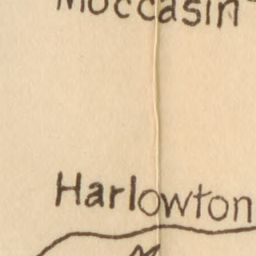 Moccasin
Harlowton